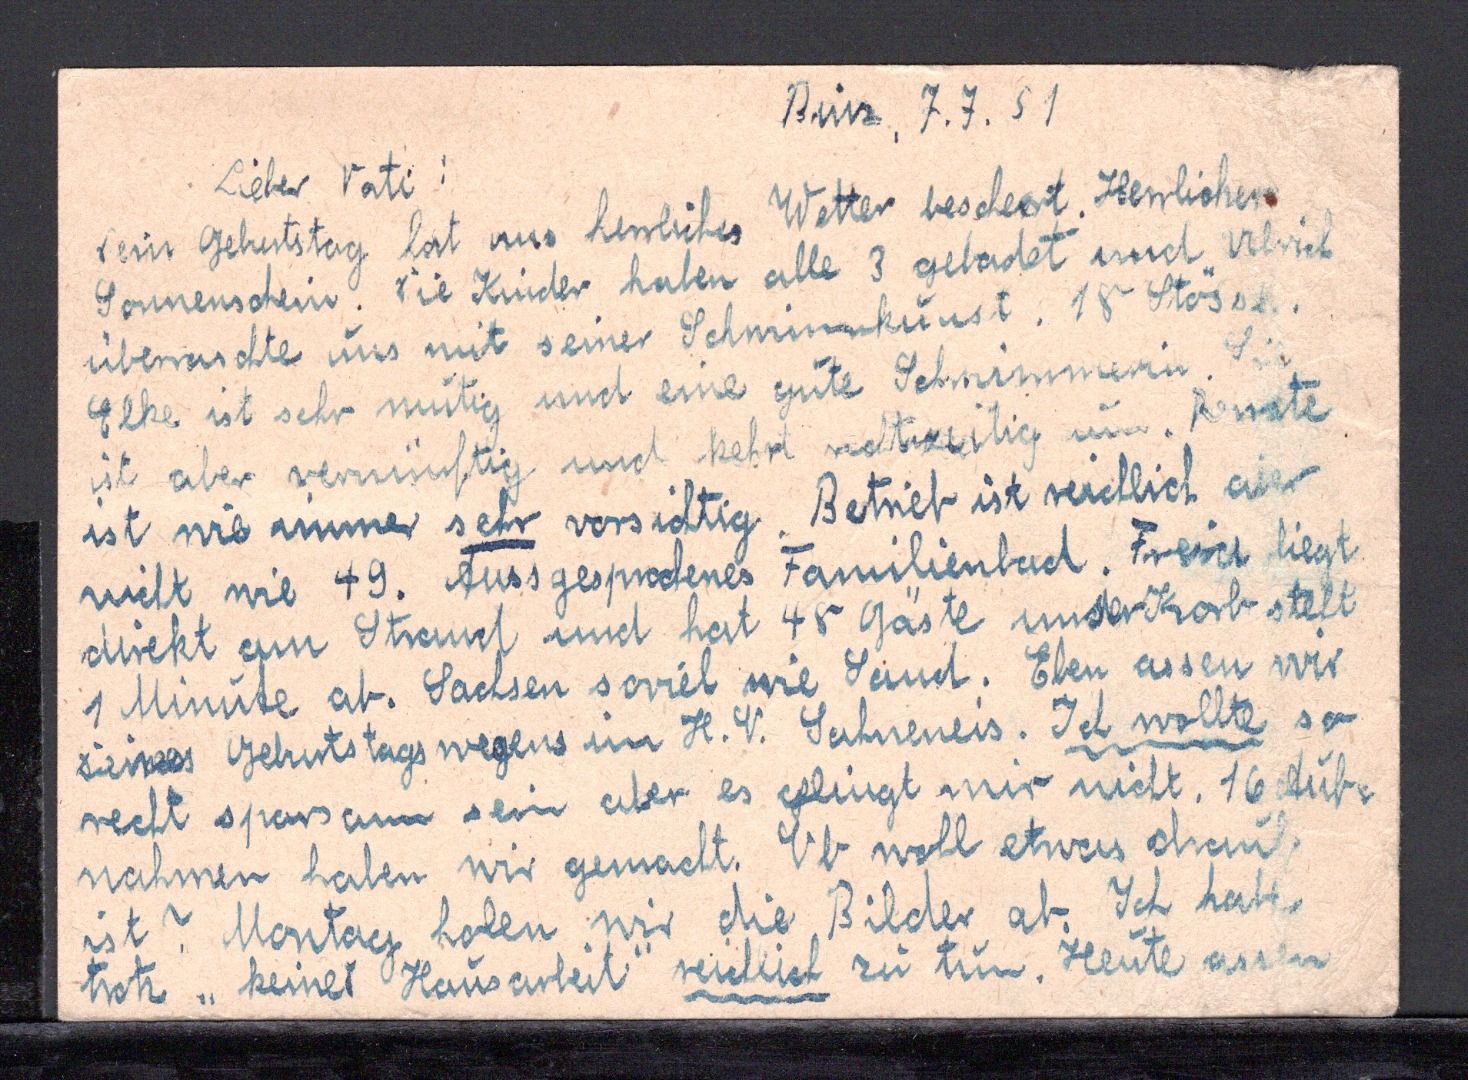 Binz, 7.7.51
Lieber Vati!
Dein Geburtstag hat uns herrliches Wetter beschert. Herrlichen
Sonnenschein. Die Kinder haben alle 3 gebadet und Ulrich
überraschte uns mit seiner Schwimmkunst. 18 Stösse.
Elke ist sehr mutig und eine gute Schwimmerin. Sie
ist aber vernünftig und kehrt rechtzeitig um. Renate
ist wie immer sehr vorsichtig. Betrieb ist reichlich aber
nicht wie 49. Aussgesprochenes Familienbad. Freia liegt
direkt am Strand und hat 48 Gäste und der Korb steht
1 Minute ab. Sachsen soviel wie Sand. Eben assen wir
Deines Geburtstags wegens im H.V. Sahneneis. Ich wollte so
recht sparsam sein aber es gelingt mir nicht. 16 Auf-
nahmen haben wir gemacht. Ob wohl etwas drauf
ist? Montag holen wir die Bilder ab. Ich habe
trotz „keiner Hausarbeit" reichlich zu tun. Heute assen